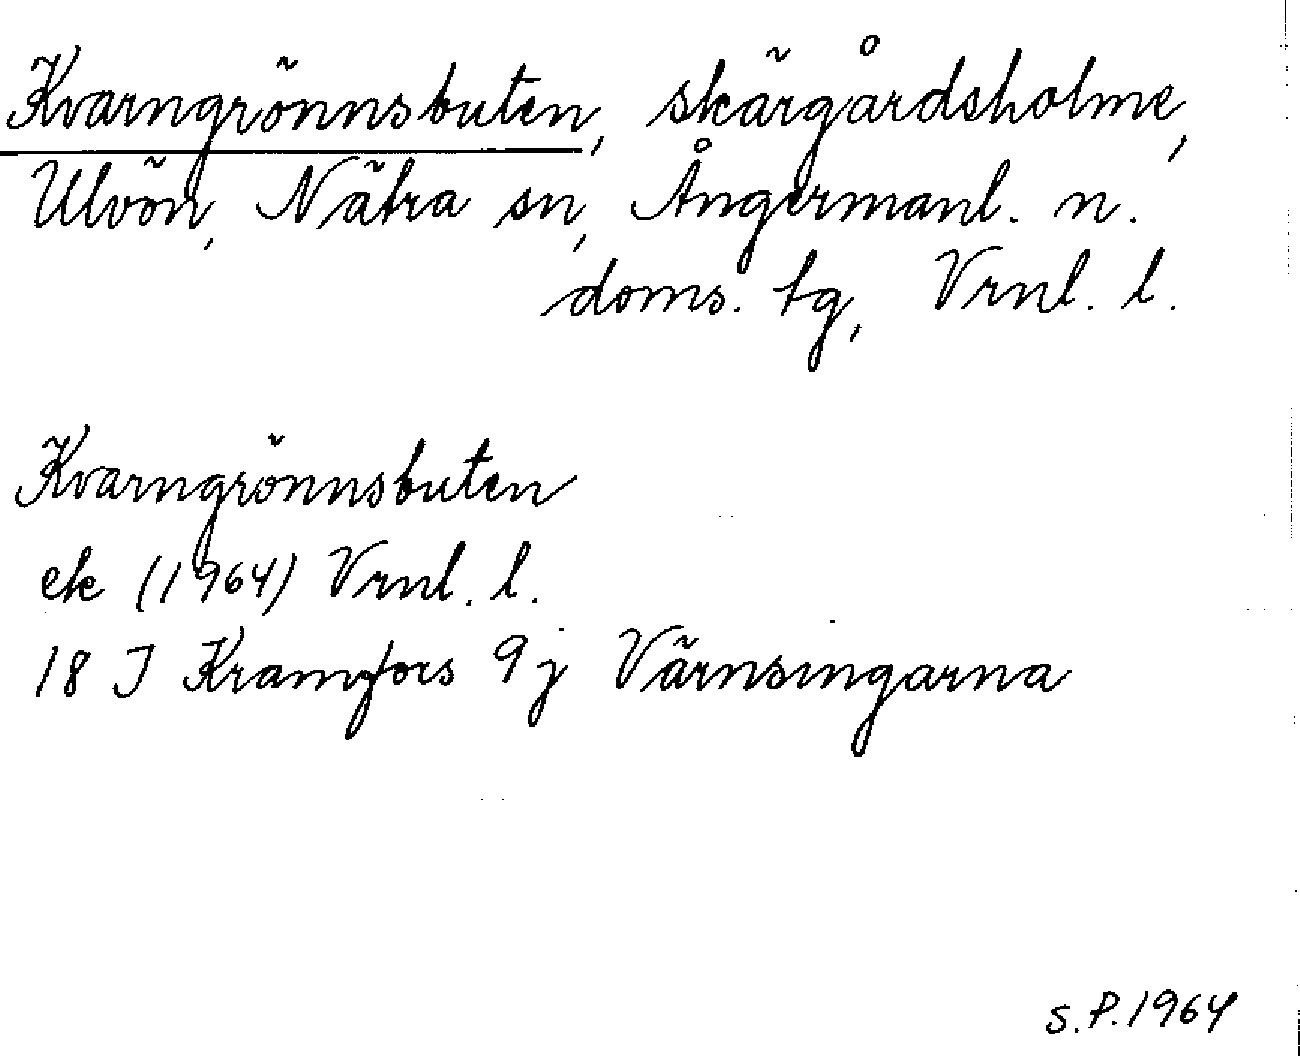 Kvarngrönnsbuten, skärgårdsholme,
Ulvön, Nätra sn, Ångermanl. n.
doms. tg, Vrnl. l.
Kvarngrönnsbuten
ek (1964) Vrnl. l.
18 I Kramfors 9 j Värnsingarna
S.P. 1964